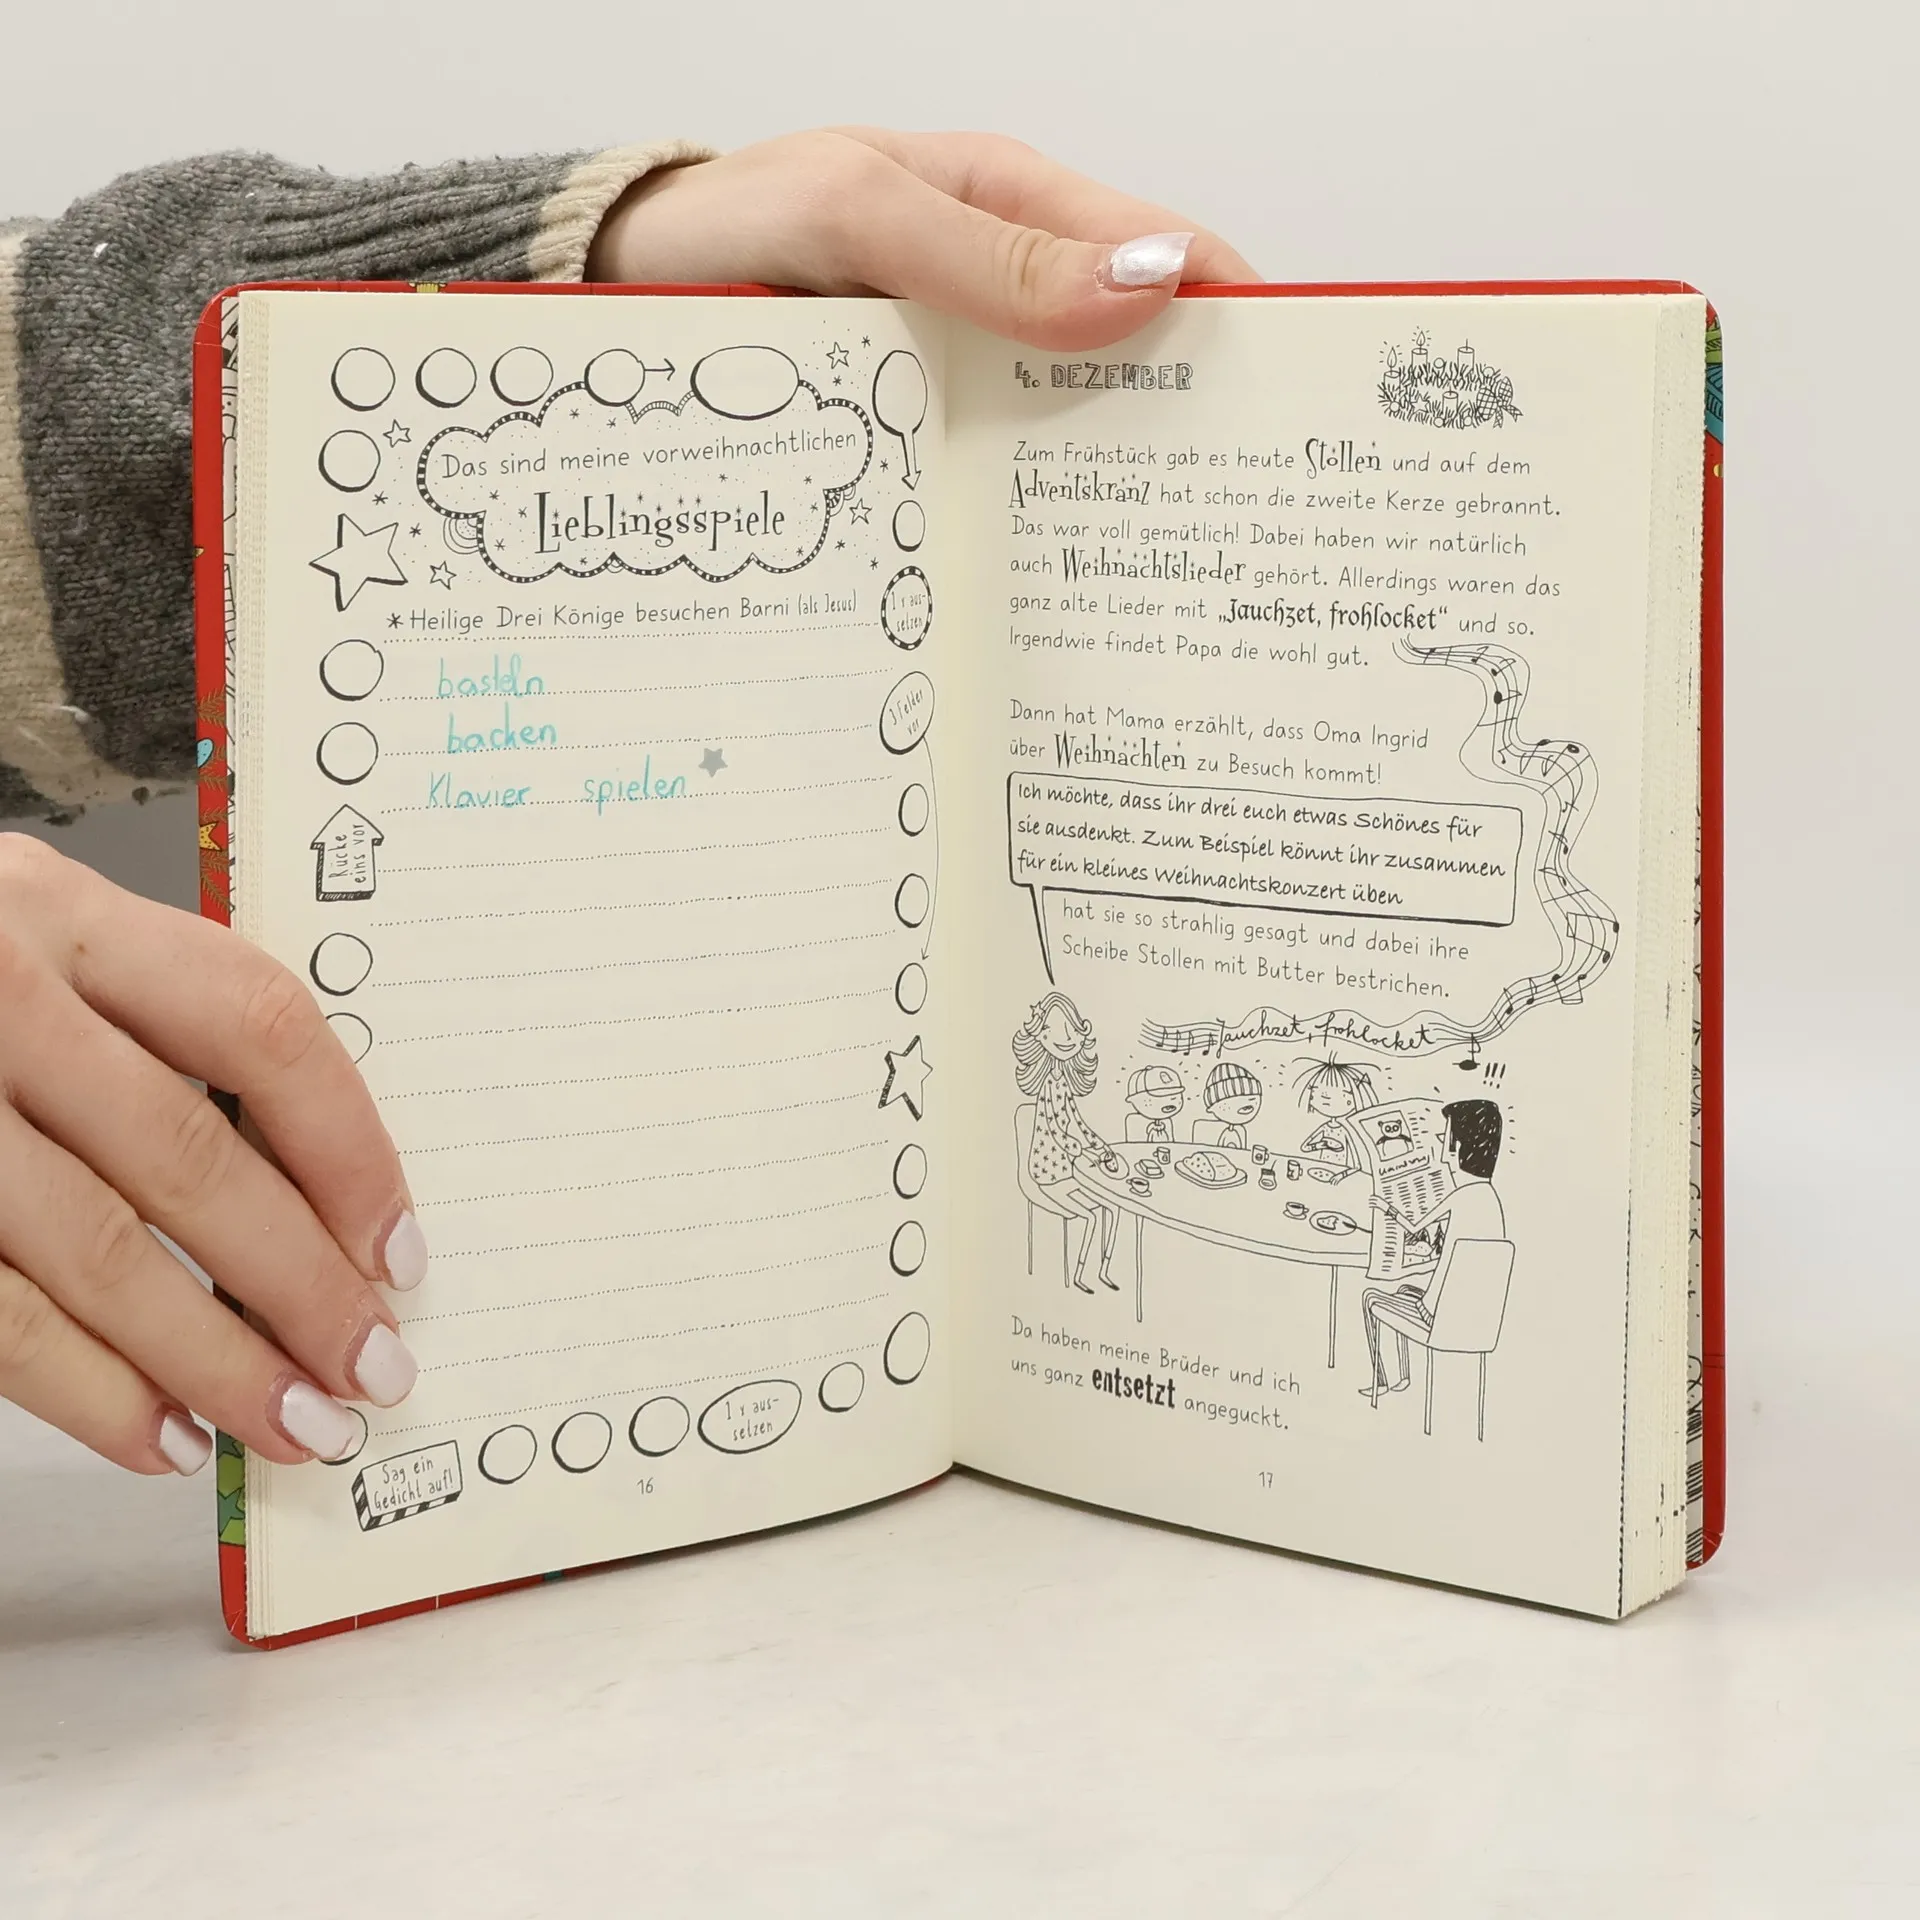 Das sind meine vorweihnachtlichen
Lieblingsspiele
* Heilige Drei Könige besuchen Barni (als Jesus)
basteln
backen
Klavier spielen
1 x aus-
setzen
3 Felder
vor
Rücke
eins vor
1 x aus-
setzen
Sag ein
Gedicht auf!
16
4. DEZEMBER
Zum Frühstück gab es heute Stollen und auf dem
Adventskranz hat schon die zweite Kerze gebrannt.
Das war voll gemütlich! Dabei haben wir natürlich
auch Weihnachtslieder gehört. Allerdings waren das
ganz alte Lieder mit „Jauchzet, frohlocket“ und so.
Irgendwie findet Papa die wohl gut.
Dann hat Mama erzählt, dass Oma Ingrid
über Weihnachten zu Besuch kommt!
Ich möchte, dass ihr drei euch etwas Schönes für
sie ausdenkt. Zum Beispiel könnt ihr zusammen
für ein kleines Weihnachtskonzert üben
hat sie so strahlig gesagt und dabei ihre
Scheibe Stollen mit Butter bestrichen.
Jauchzet, frohlocket
!!!
Da haben meine Brüder und ich
uns ganz entsetzt angeguckt.
17